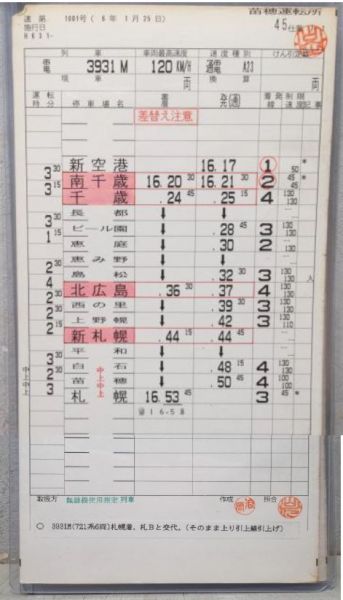 達第 1001号 ( 6年 1月25日)
施行日
苗穂運転所
45仕業
列車
車両最高速度
速度種別
けん引定数
電 3931M 120KM/H 通電 A23
現車 換算
運転時分 停車場名 着 発 着発線 制限速度 記事
差替え注意
新空港 16.17 1 50 *
3 30 南千歳 16.20 30 16.21 30 2 45 45 *
3 15 千歳 .24 45 .25 15 4 130
長都 ↓ ↓
3 30 ビール園 ↓ .28 45 3 130
1 15 恵庭 ↓ .30 2 130
恵み野 ↓ ↓
2 30 島松 ↓ .32 30 3 130 入
4 北広島 .36 30 .37 45 4 130
2 西の里 ↓ .39 30 3 130
2 30 上野幌 ↓ .42 3 130 110
2 15 新札幌 .44 15 .44 45
平和 ↓ ↓
3 30 白石 中上 ↓ .48 15 4 130
2 30 苗穂 中上 ↓ .50 45 4 100
3 札幌 16.53 45 3 45 *
取扱方
作成
照合
○ 3931M(721系6両)札幌着、札Bと交代。(そのまま上り引上線引上げ)